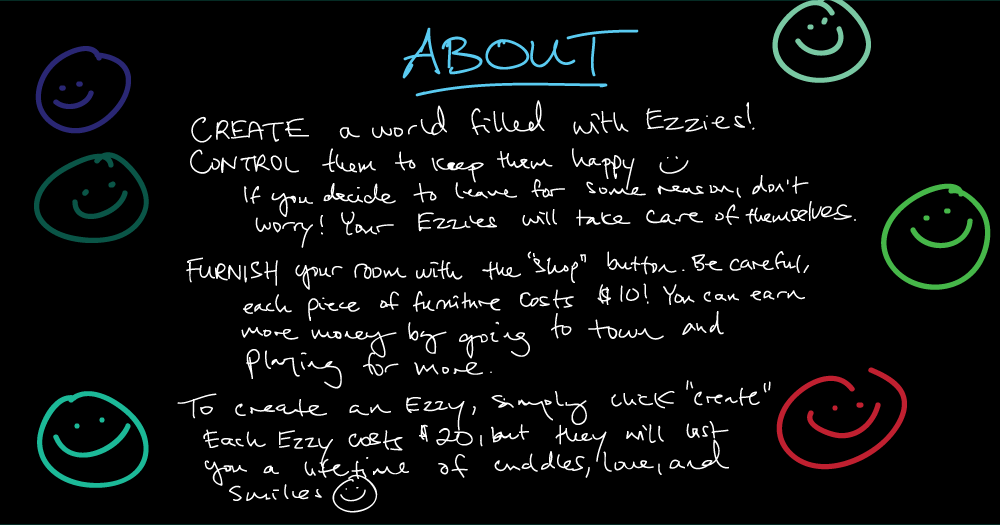 ABOUT
CREATE a world filled with Ezzies!
CONTROL them to keep them happy
If you decide to leave for some reason, don't
worry! Your Ezzies will take care of themselves.
FURNISH your room with the "shop" button. Be careful,
each piece of furniture costs $10! You can earn
more money by going to town and
playing for more.
To create an Ezzy, simply click "create"
Each Ezzy costs $20, but they will last
you a lifetime of cuddles, love, and
smiles